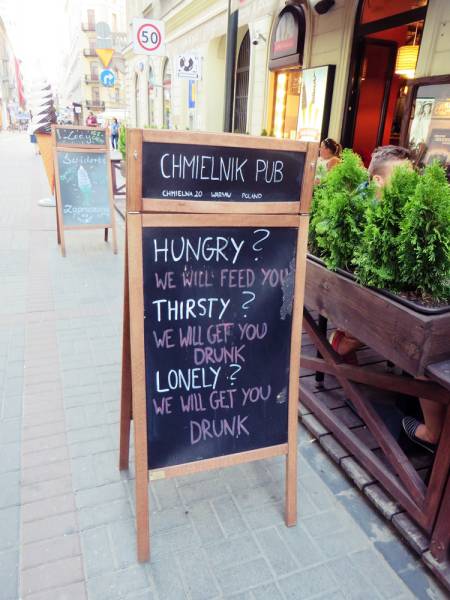 50
CHMIELNIK PUB
CHMIELNA 20 WARSAW POLAND
HUNGRY?
WE WILL FEED YOU
THIRSTY?
WE WILL GET YOU
DRUNK
LONELY?
WE WILL GET YOU
DRUNK
Lody
Świderki
Zapraszamy